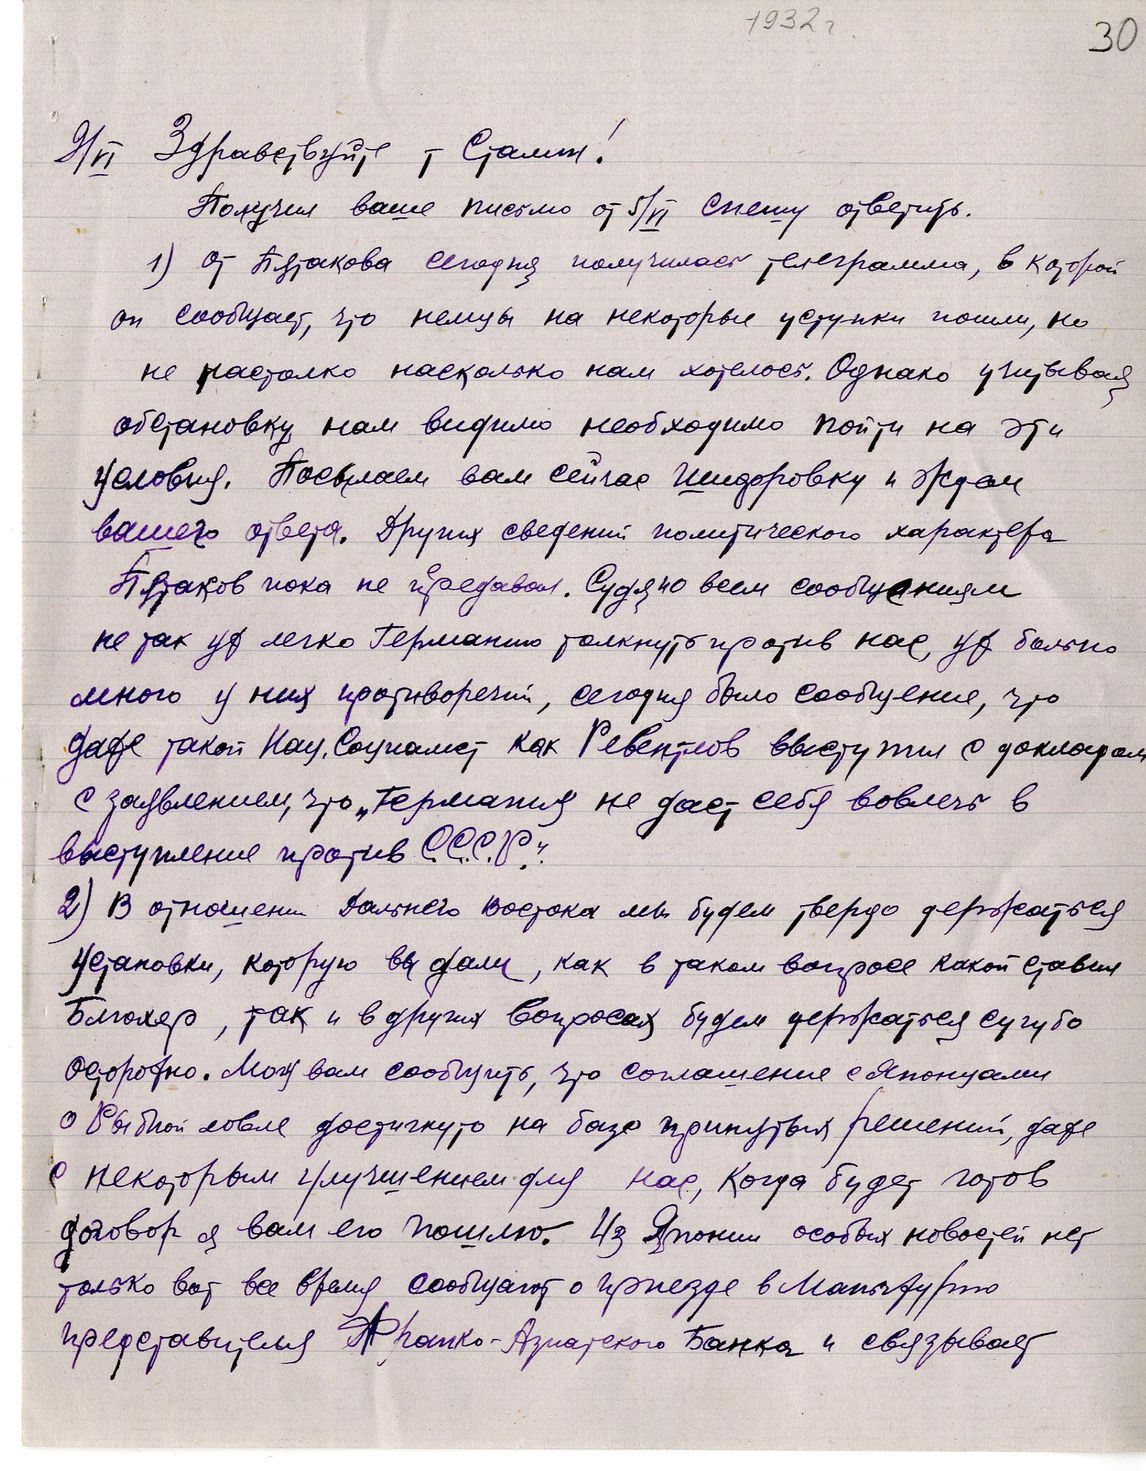 1932 г.
30
9/VI Здравствуйте т Сталин!
Получил ваше письмо от 5/VI спешу ответить.
1) От Пятакова сегодня получилась телеграмма, в которой
он сообщает, что немцы на некоторые уступки пошли, но
не настолко насколько нам хотелось. Однако учитывая
обстановку нам видимо необходимо пойти на эти
условия. Посылаем вам сейчас шидоровку и ждем
вашего ответа. Других сведений политического характера
Пятаков пока не передавал. Судя по всем сообщениям
не так уж легко Германию толкнуть против нас, уж больно
много у них противоречий, сегодня было сообщение, что
даже такой Нац. Социалист как Ревентлов выступил с докладом
с заявлением, что „Германия не даст себя вовлечь в
выступление против С.С.С.Р."
2) В отношении Дальнего Востока мы будем твердо держаться
установки, которую вы дали, как в таком вопросе какой ставил
Блюхер, так и в других вопросах будем держаться сугубо
осторожно. Могу вам сообщить, что соглашение с Японцами
о Рыбной ловле достигнуто на базе принятых решений, даже
с некоторым улучшением для нас, когда будет готов
договор я вам его пошлю. Из Японии особых новостей нет
только вот все время сообщают о приезде в Манчжурию
представителя Франко-Азиатского Банка и связывает